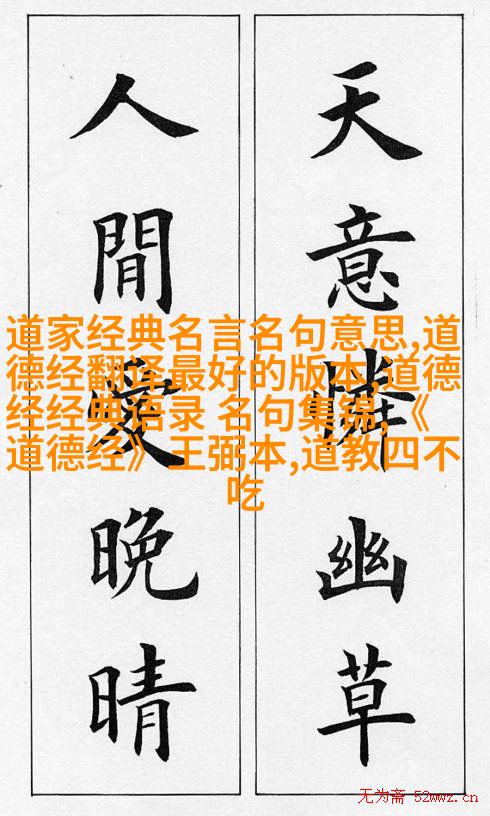 天意憐幽草
人間愛晚晴
道家经典名言名句意思,道
德经翻译最好的版本,道德
经经典语录 名句集锦,《
道德经》王弼本,道教四不
吃
无为斋 52wwz.cn